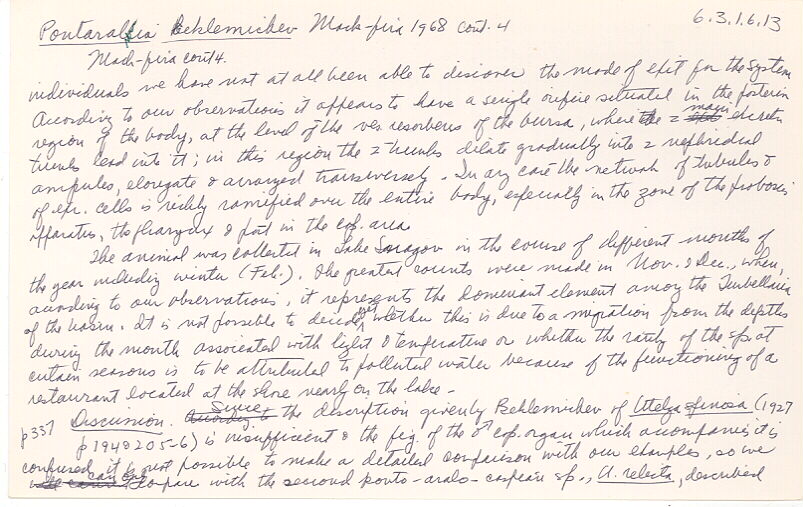 Pontaralia Beklemichev Mack-fira 1968 cont. 4 6.3.1.6.13
Mack-fira cont 4.
individuals we have not at all been able to discover the mode of exit for the system
According to our observations it appears to have a single orifice situated in the posterior
region of the body, at the level of the ves. resorbens of the bursa, where the 2 main excretory
trunks lead into it; in this region the 2 trunks dilate gradually into 2 nephridial
ampules, elongate & arranged transversely. In any case the network of tubules &
of epr. cells is richly ramified over the entire body, especially in the zone of the proboscis
apparatus, the pharynx & post in the cop. area
The animal was collected in Lake in the course of different months of
the year including winter (Feb.). The greatest counts were made in Nov. & Dec., when,
according to our observations, it represents the dominant element among the Turbellaria
of the basin. It is not possible to decide yet whether this is due to a migration from the depths
during the month associated with light & temperature or whether the rarity of the sp. at
certain seasons is to be attributed to polluted water because of the functioning of a
restaurant located at the shore nearly on the lake -
p337 Discussion. Since the description given by Beklemichev of Utelga spinosa (1927
p 194 & 205-6) is insufficient & the fig. of the ♂ cop. organ which accompanies it is
confused, it is not possible to make a detailed comparison with our examples, so we
can only compare with the second ponto-aralo-caspian sp., U. relicta, described